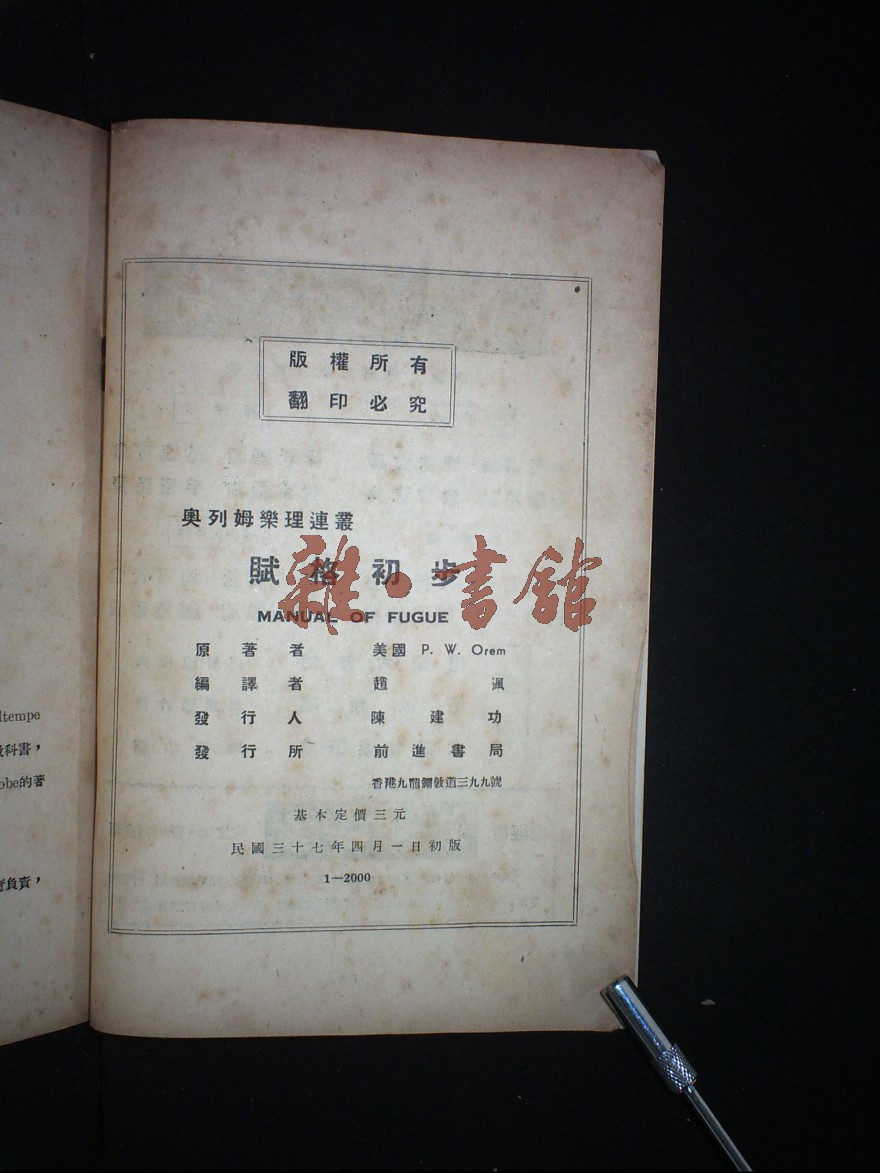 ltempe
教科書，
obe的著
負責，
版權所有
翻印必究
奧列姆樂理連叢
賦格初步
MANUAL OF FUGUE
原著者 美國 P. W. Orem
編譯者 趙渢
發行人 陳建功
發行所 前進書局
香港九龍彌敦道三九九號
基本定價三元
民國三十七年四月一日初版
1—2000
雜·書館